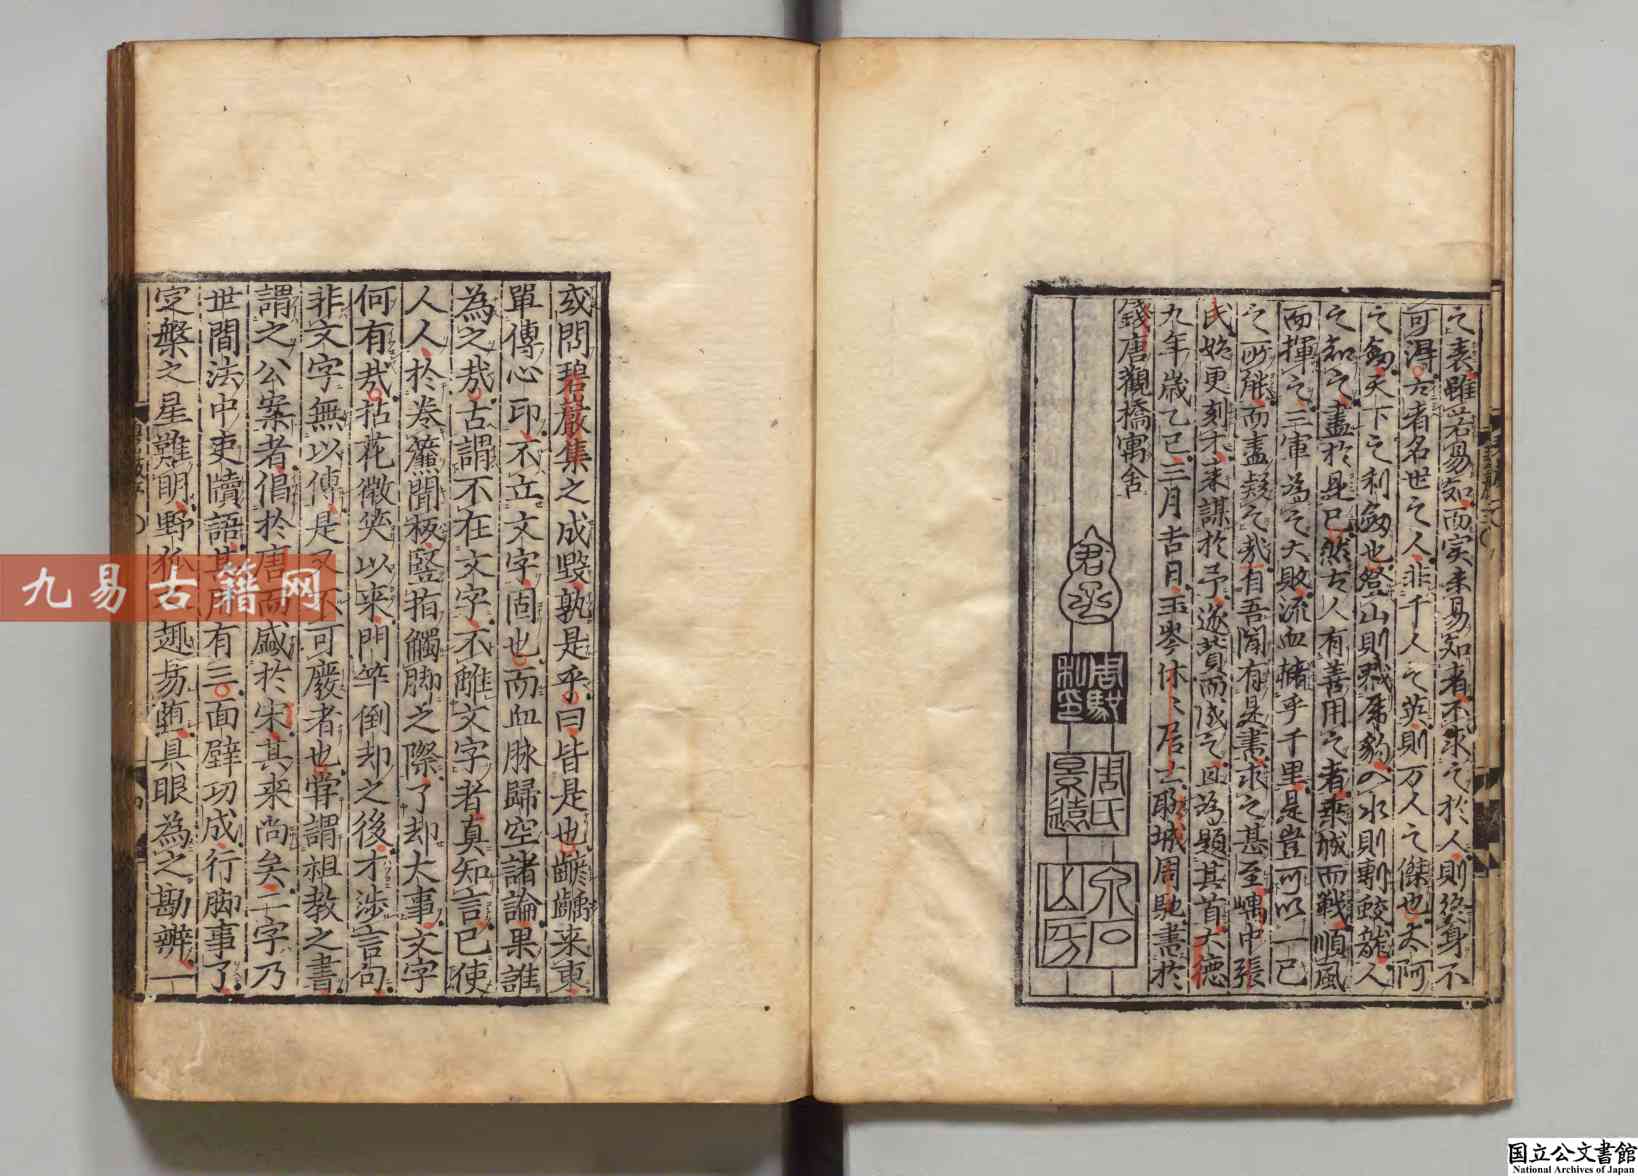 之表雖若易知而实未易知者不求之於人則終身不
可得古者名世之人非千人之英則万人之傑也太阿
之劔天下之利劔也登山則戮虎豹入水則剸蛟龍人
之知之盡於是已然古人有善用之者乘城而戰順風
而揮之三軍為之大敗流血赭乎千里是豈可以一己
之所能而盡疑之哉有吾聞有是書求之甚至嵎中張
氏始更刻木來謀於予遂贊而成之且為題其首大德
九年歲乙巳三月吉日玉岑休休居士聊城周馳書於
錢唐觀橋寓舍
君丞
周馳私印
周氏景遠
山房
或問碧巖集之成毀孰是乎曰皆是也鼶齲来東
單傳心印不立文字固也而血脉歸空諸論果誰
為之哉古謂不在文字不離文字者真知言已使
人人於卷簾聞板竪指觸脚之際了却大事文字
何有哉拈花微笑以来門竿倒却之後才涉言句
非文字無以傳是又不可廢者也甞謂祖教之書
謂之公案者倡於唐而盛於宋其来尚矣二字乃
世間法中吏牘語其用有三面壁功成行脚事了
定槃之星難明野狐之趣易堕具眼為之勘辨一
九易古籍网
国立公文書館
National Archives of Japan